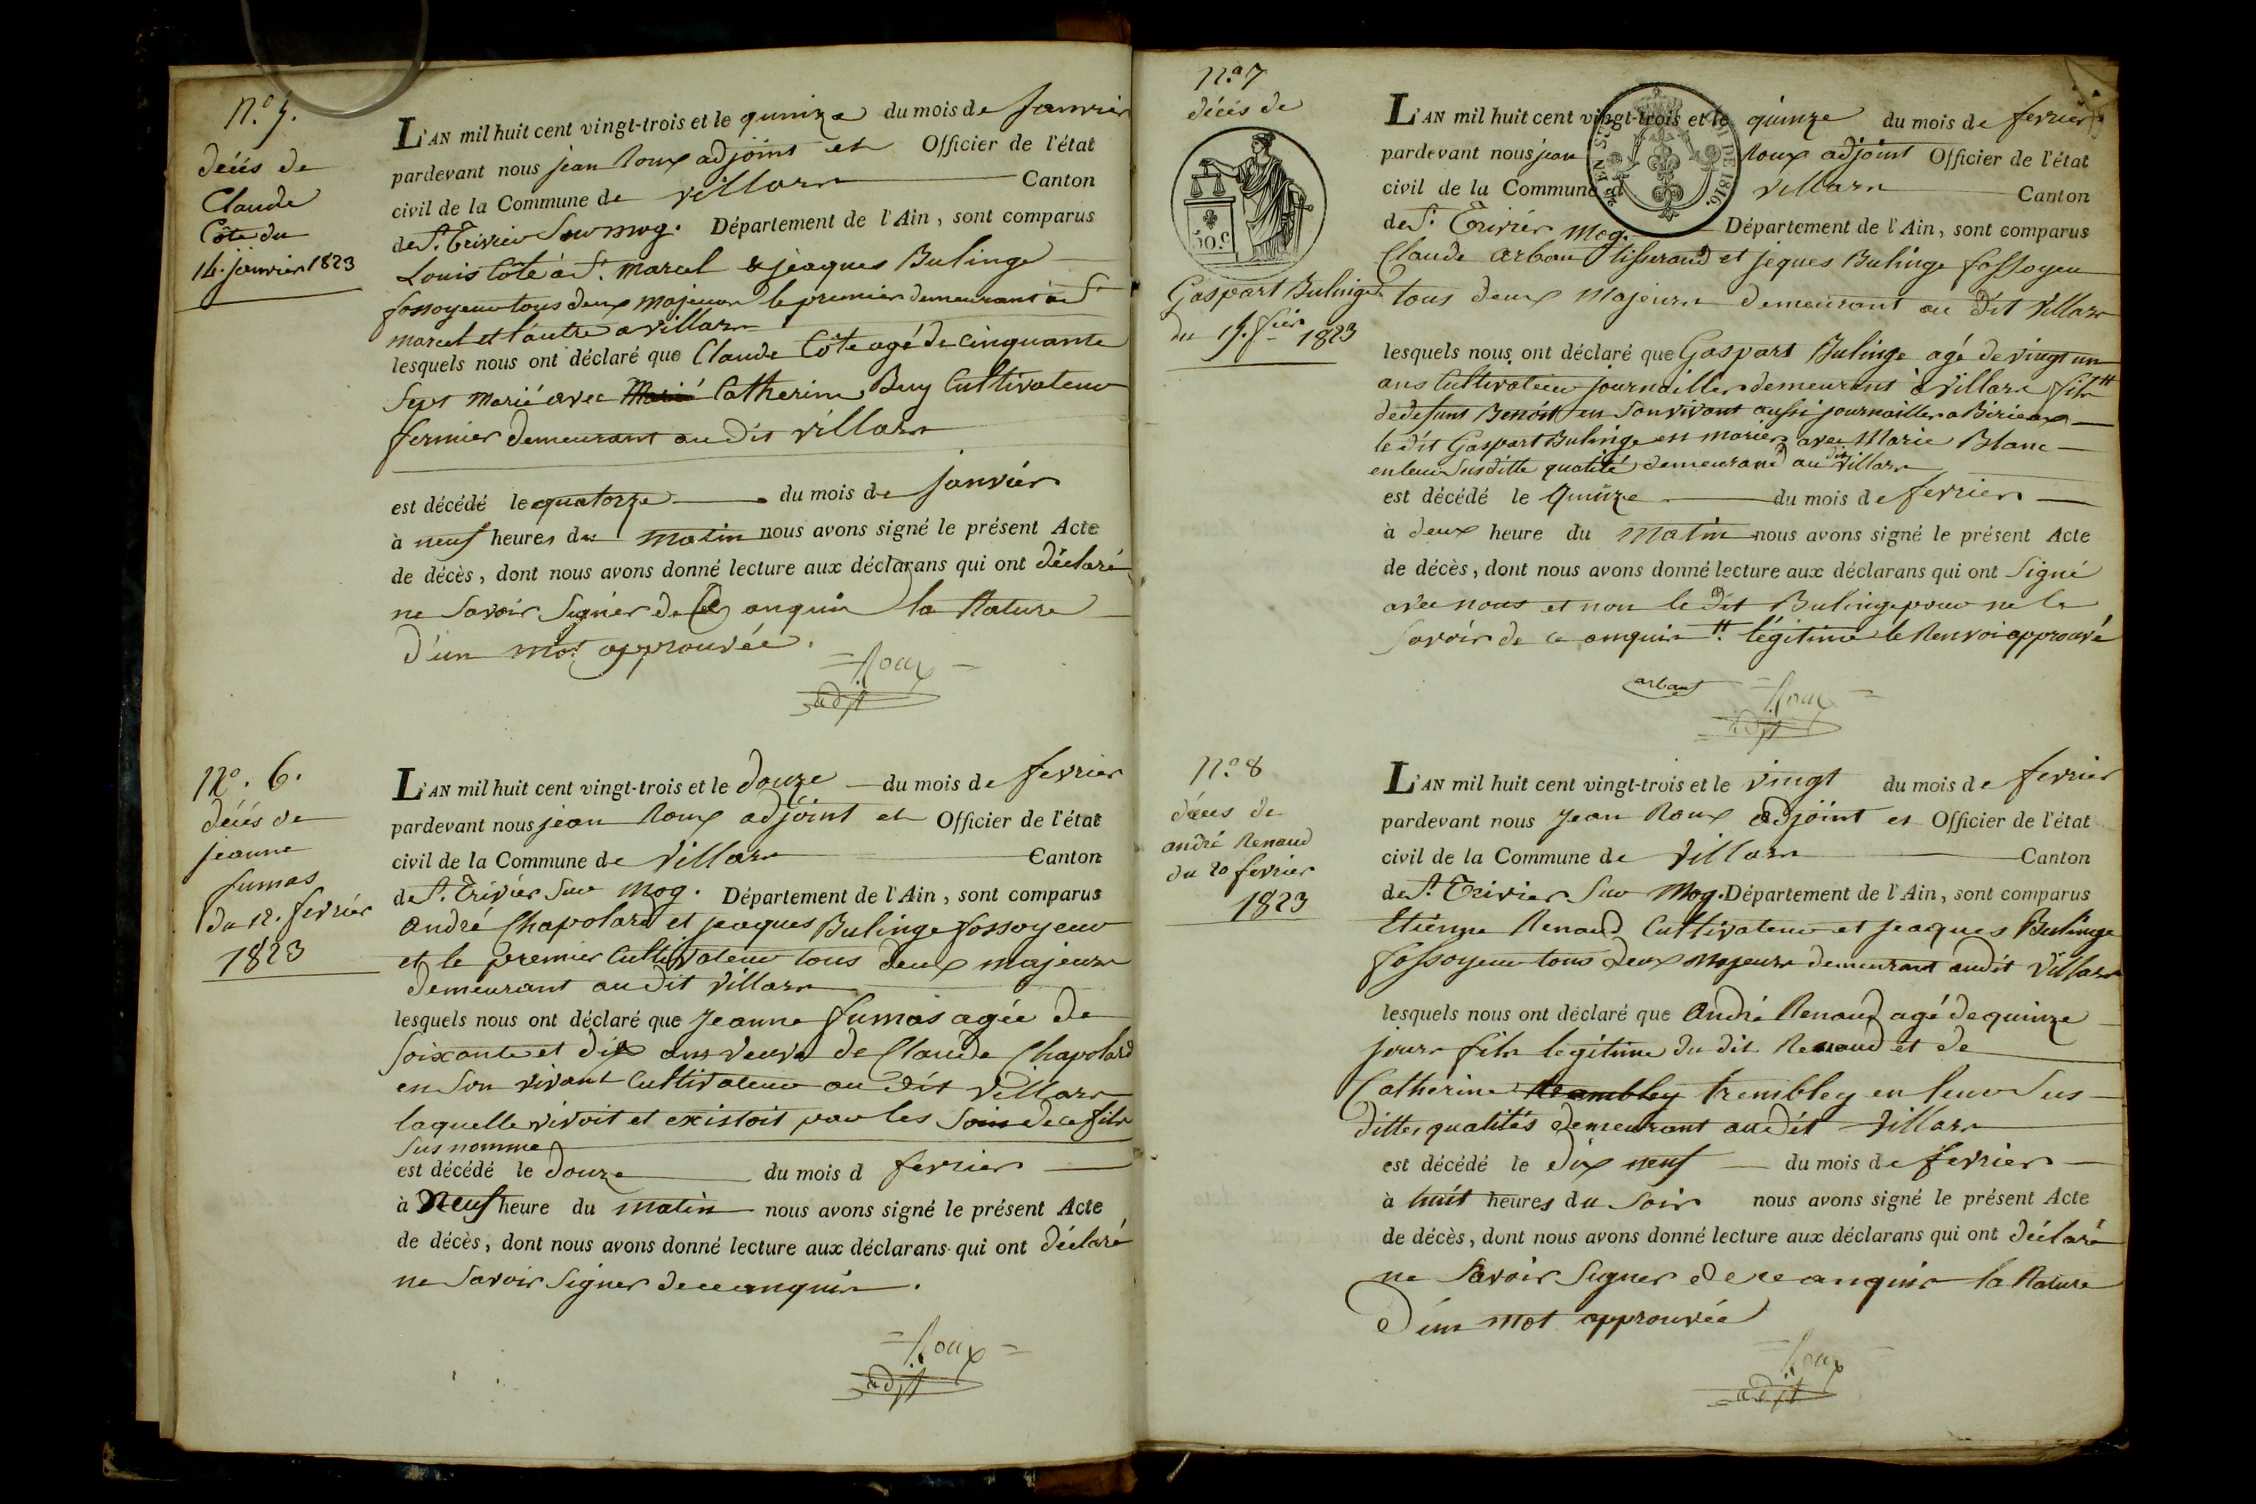 N.o 5.
décés de
Claude
Côte du
14. janvier 1823
L'AN mil huit cent vingt-trois et le quinze du mois de janvier
pardevant nous jean Roux adjoint et Officier de l'état
civil de la Commune de villars Canton
de St. Trivier Sur mog. Département de l'Ain, sont comparus
Louis Côte à St. marcel & jeaques Bulinge
fossoyeur tous deux majeurs le premier demeurant à St
marcel et l'autre a villars
lesquels nous ont déclaré que Claude Côte agé de cinquante
Sept marié avec Marié Catherine Buy Cultivateur
fermier demeurant au dit villars
est décédé le quatorze du mois de janvier
à neuf heures du matin nous avons signé le présent Acte
de décès, dont nous avons donné lecture aux déclarans qui ont déclaré
ne Savoir Signer de Ce anquis la Rature
d'un mot approuvée.
= Roux =
adjt
N.o 6.
décés de
jeanne
fumas
du 12. fevrier
1823
L'AN mil huit cent vingt-trois et le douze du mois de fevrier
pardevant nous jean Roux adjoint et Officier de l'état
civil de la Commune de Villars Canton
de St. Trivier Sur Mog. Département de l'Ain, sont comparus
andré Chapolard et jeaques Bulinge fossoyeur
et le premier Cultivateur tous deux majeurs
demeurant au dit villars
lesquels nous ont déclaré que jeanne fumas agée de
Soixante et dix ans veuve de Claude Chapolard
en Son vivant Cultivateur au dit Villars
laquelle vivoit et existoit par les Soins de ce fils
Sus nommé
est décédé le douze du mois d fevrier
à Neuf heure du matin nous avons signé le présent Acte
de décès, dont nous avons donné lecture aux déclarans qui ont déclaré
ne Savoir Signer de ce anquis.
= Roux =
adjt
N.o 7
décés de
50.C
Gaspart Bulinge
du 15. fier 1823
L'AN mil huit cent vingt-trois et le quinze du mois de fevrier
pardevant nous jean Roux adjoint Officier de l'état
civil de la Commune d villars Canton
de St. Trivier Mog. Département de l'Ain, sont comparus
DE 1816.
Claude arban tisserand et jeques Bulinge fossoyeu
tous deux Majeurs demeurant au dit Villars
lesquels nous ont déclaré que Gaspart Bulinge agé de vingt un
ans Cultivateur journaillier demeurant à villars fils #
de defunt Benoit en Son vivant aussi journaillier a Birieux
le dit Gaspart Bulinge est marier avec Marie Blanc
en leur Susditte qualité demeurand au dit Villars
est décédé le quinze du mois de fevrier
à deux heure du matin nous avons signé le présent Acte
de décès, dont nous avons donné lecture aux déclarans qui ont Signé
avec nous et non le dit Bulinge pour ne le
Savoir de ce anquis # légitime le Renvoi approuvé
arban
= Roux =
adjt
N.o 8
décés de
andré Renaud
du 20 fevrier
1823
L'AN mil huit cent vingt-trois et le vingt du mois de fevrier
pardevant nous Jean Roux adjoint et Officier de l'état
civil de la Commune de Villars Canton
de St. Trivier Sur Mog. Département de l'Ain, sont comparus
Etienne Renaud Cultivateur et jeaques Bulinge
fossoyeur tous deux Majeurs demeurant audit Villars
lesquels nous ont déclaré que André Renaud agé de quinze
jours fils legitime du dit Renaud et de
Catherine trembley en leur Sus
dittes qualités demeurant au dit Villars
est décédé le dix neuf du mois de fevrier
à huit heures du Soir nous avons signé le présent Acte
de décès, dont nous avons donné lecture aux déclarans qui ont déclaré
ne Savoir Signer de ce anquis la Rature
d'un mot approuvée
= Roux =
adjt